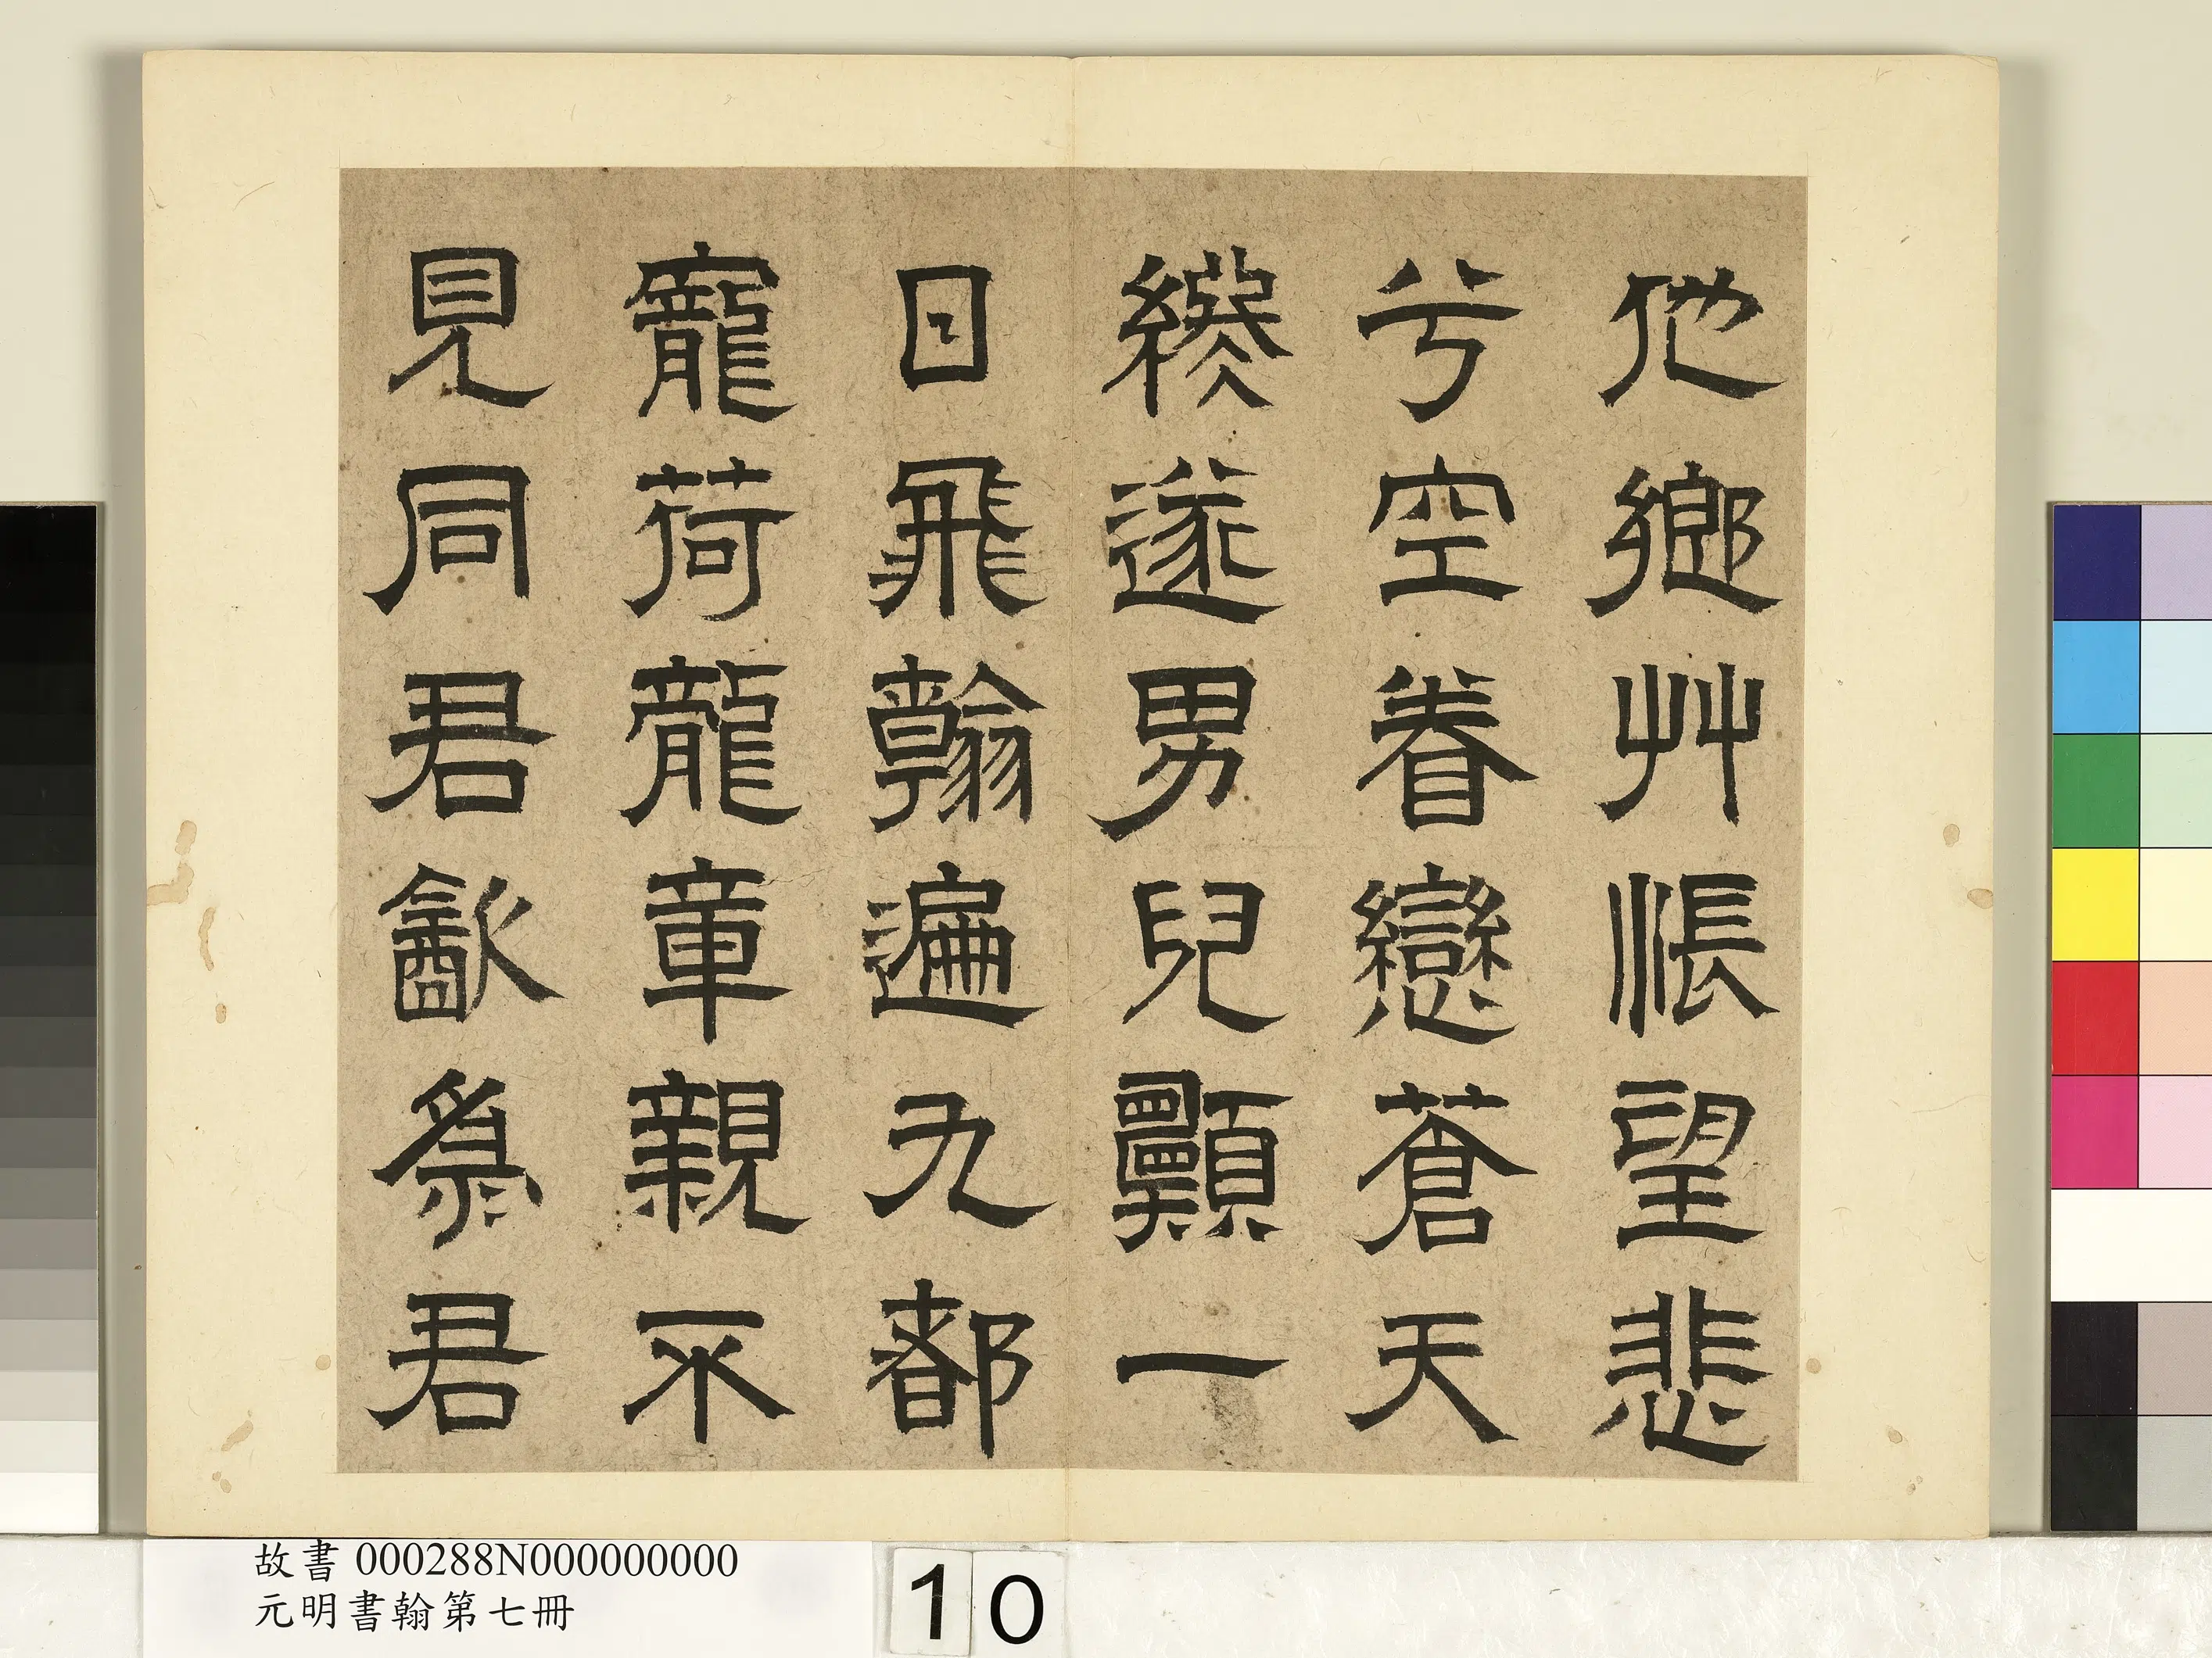 他鄉艸悵望悲
兮空眷戀蒼天
遂男兒願一
日飛翰遍九都
寵荷龍章親不
見同君㱃爲君
故書 000288N000000000
元明書翰第七冊
10